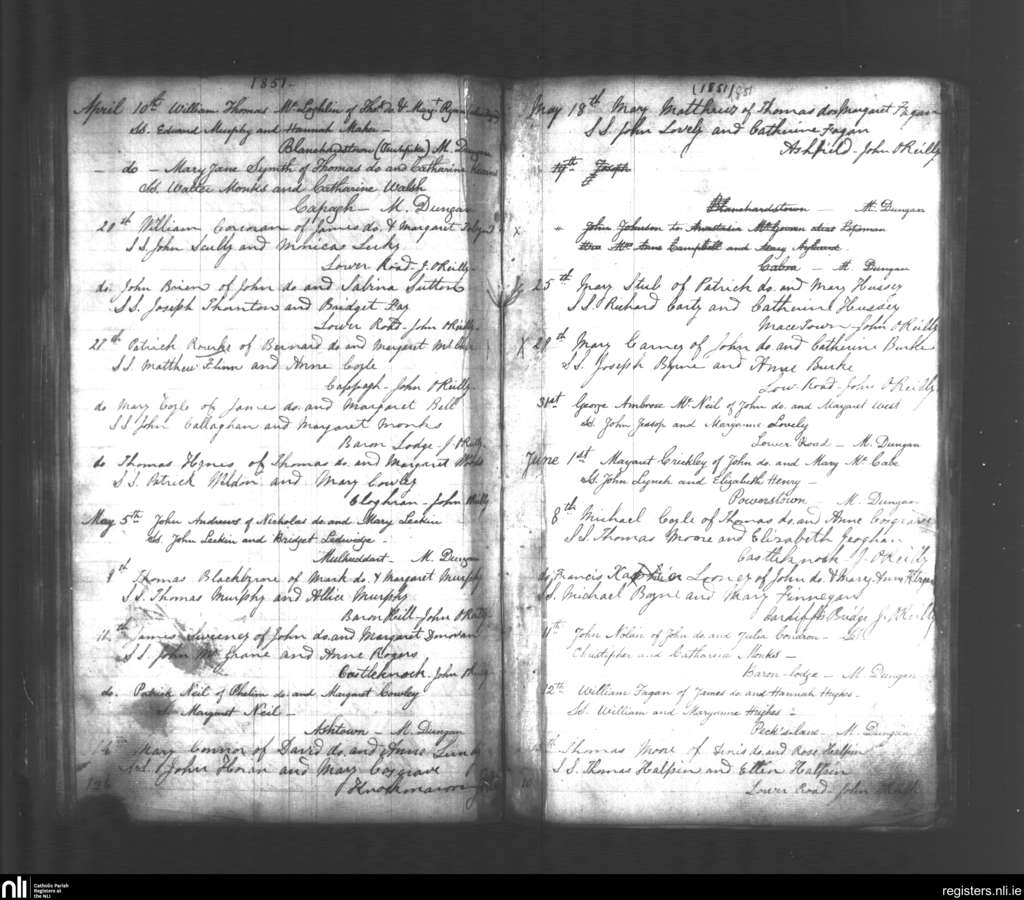 1851-
April 10th William Thomas McLochlin of Thos do & Margt Byrne
SS. Edward Murphy and Hannah Maher -
Blanchardstown (Turnpike) M. Dungan
- do - Mary Jane Symth of Thomas do and Catharine
SS Walter Monks and Catharine Walsh
Capagh - M. Dungan
20th William Corcoran of James do. & Margaret
SS John Scully and Monicas
Lower Road - J. O'Reilly
do. John Brien of John do and Sabrina Sutton
S.S. Joseph Thornton and Bridget Fay
Lower Road - John O'Reilly -
27th Patrick Rourke of Bernard do and Margaret
SS. Matthew Flinn and Anne Coyle
Cappagh - John O'Reilly -
do Mary Coyle of James do. and Margaret Bell
SS John Callaghan and Margaret Monks
Baron Lodge - J. O'Reilly
do Thomas Hynes of Thomas do. and Margaret
S.S. Patrick Weldon and Mary Cowley
Cloghran - John Reilly
May 5th John Andrews of Nicholas do and Mary Larkin
SS. John Larkin and Bridget Ledwidge -
Mulhuddart - M. Dungan
8th Thomas Blackbyrne of Mark do. & Margaret Murphy
S.S. Thomas Murphy and Allice Murphy
Baron Hill - John O'Reilly
11th James Sweeney of John do. and Margaret Donovan
SS John McGrane and Anne Rogers
Castleknock - John O'Reilly
do. Patrick Neil of Phelim do and Margaret Cowley
SS Margaret Neil -
Ashtown - M. Dungan
16 Mary Connor of David do. and Anne
SS. John Horan and Mary Cosgrave
Knockmaroon
196
(1851) 851
May 18th Mary Matthews of Thomas do. Margaret Fagan
S.S John Lovely and Catherine Fagan
Ashfield - John O'Reilly
19th Joseph
Blanchardstown - M. Dungan
" John Johnson to Anastasia McGovern alias
Mrs Anne Campbell and Mary
Cabra - M. Dungan
25th Mary Stub of Patrick do. and Mary Hussey
S.S. Richard Carty and Catherine Hussey
Macetown - John O'Reilly
X 29th Mary Carney of John do. and Catherine Burke
S.S. Joseph Byrne and Anne Burke
Low. Road - John O'Reilly
31st George Ambrose McNeil of John do. and Margaret West
SS. John Jessop and Maryanne Lovely
Lower Road - M. Dungan
June 1st Margaret Crickley of John do. and Mary McCabe
SS. John Lynch and Elizabeth Henry -
Powerstown - M. Dungan
8th Michael Coyle of Thomas do. and Anne Cosgrave
S.S. Thomas Moore and Elizabeth Geoghan
Castleknock J. O'Reilly
do. Francis Xavier of John do. & Mary Anne
S.S. Michael Boyne and Mary Finnegan
Cardiffs Bridge J. O'Reilly
11th John Nolan of John do and Julia Condron - SS
Christopher and Catharine Monks -
Baron-lodge - M. Dungan
12th William Fagan of James do. and Hannah Hughes -
SS. William and Maryanne Hughes -
Peck's lane - M. Dungan
Thomas Moore of Denis do. and Rose Halpin
S.S. Thomas Halpin and Ellen Halpin
Lower Road - John O'Reilly
nli
Catholic Parish
Registers at
the NLI
registers.nli.ie